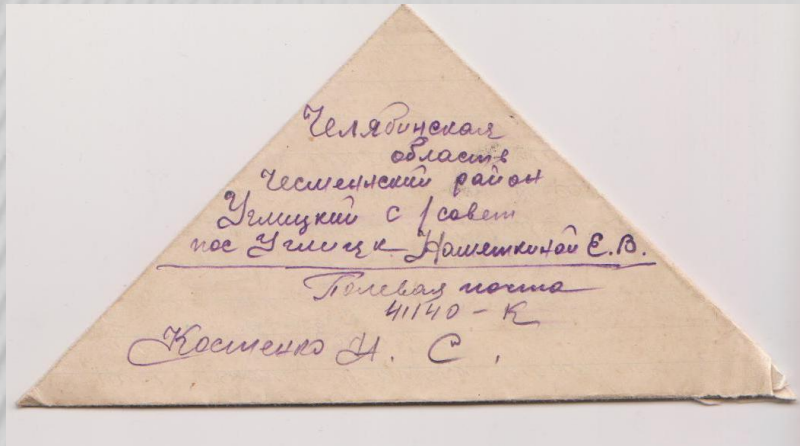 Челябинская
область
Чесменский район
Углицкий с/совет
пос Углицк Нометкиной Е. В.
Полевая почта
41140 – К
Костенко И. С.